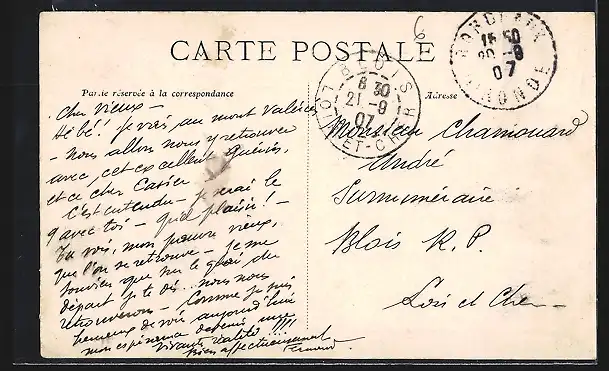 6
CARTE POSTALE
BORDEAUX
18 50
20 - 9
07
GIRONDE
BLOIS
8 30
21 - 9
07
LOIR-ET-CHER
Partie réservée à la correspondance
Adresse
Cher vieux -
Hé bé ! je vais au mont Valérien
- Nous allons nous y retrouver
avec cet excellent Quérins,
et ce cher Carier
C'est entendu - je serai le
9 avec toi - quel plaisir ! -
Tu vois, mon pauvre vieux,
que l'on se retrouve - je me
souviens que sur le quai du
départ je te dis... nous nous
retrouverons - Comme je suis
heureux de voir aujourd'hui
mon espérance devenir une
vivante réalité !!!!
Bien affectueusement
Fernand.
Monsieur Chamouard
André
Surnuméraire
Blois R. P.
Loir et Cher -